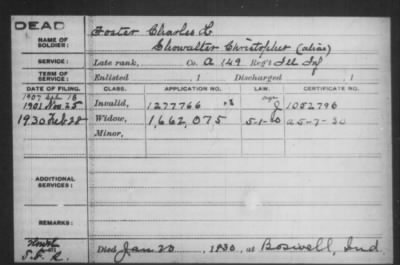 DEAD
NAME OF SOLDIER: Foster Charles L
Showalter Christopher (alias)
SERVICE: Late rank, Co. A 149 Reg't Ill Inf
TERM OF SERVICE: Enlisted , 1 Discharged , 1
DATE OF FILING. CLASS. APPLICATION NO. LAW. CERTIFICATE NO.
1901 Nov. 25 Invalid, 1277766 J 1052796
1930 Feb 28 Widow, 1,662,075 5-1-20 a 5-7-30
Minor,
ADDITIONAL SERVICES:
REMARKS:
Died Jan 20 1930, at Boswell, Ind.